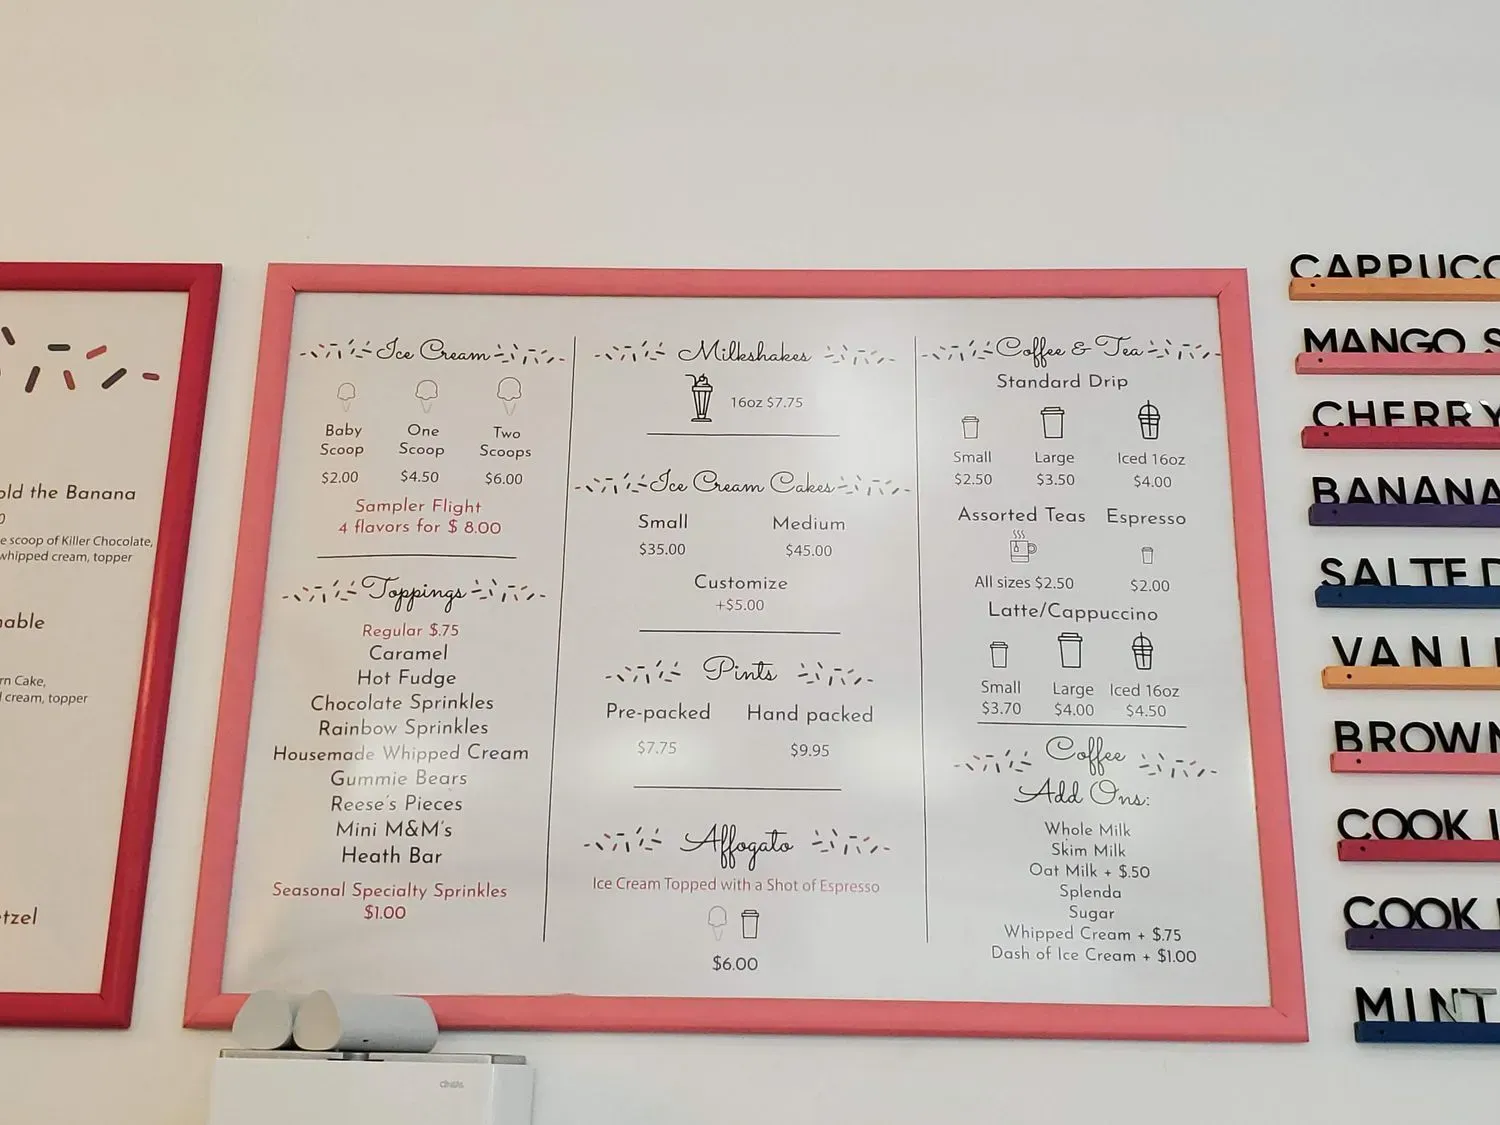 old the Banana
e scoop of Killer Chocolate,
whipped cream, topper
rn Cake,
cream, topper
Ice Cream
Baby Scoop
$2.00
One Scoop
$4.50
Two Scoops
$6.00
Sampler Flight
4 flavors for $ 8.00
Toppings
Regular $.75
Caramel
Hot Fudge
Chocolate Sprinkles
Rainbow Sprinkles
Housemade Whipped Cream
Gummie Bears
Reese's Pieces
Mini M&M's
Heath Bar
Seasonal Specialty Sprinkles
$1.00
Milkshakes
16oz $7.75
Ice Cream Cakes
Small
$35.00
Medium
$45.00
Customize
+$5.00
Pints
Pre-packed
$7.75
Hand packed
$9.95
Affogato
Ice Cream Topped with a Shot of Espresso
$6.00
Coffee & Tea
Standard Drip
Small
$2.50
Large
$3.50
Iced 16oz
$4.00
Assorted Teas
All sizes $2.50
Espresso
$2.00
Latte/Cappuccino
Small
$3.70
Large
$4.00
Iced 16oz
$4.50
Coffee
Add Ons:
Whole Milk
Skim Milk
Oat Milk + $.50
Splenda
Sugar
Whipped Cream + $.75
Dash of Ice Cream + $1.00
CAPPUCC
MANGO S
CHERRY
BANANA
SALTED
VANI
BROWN
COOK I
COOK
MINT